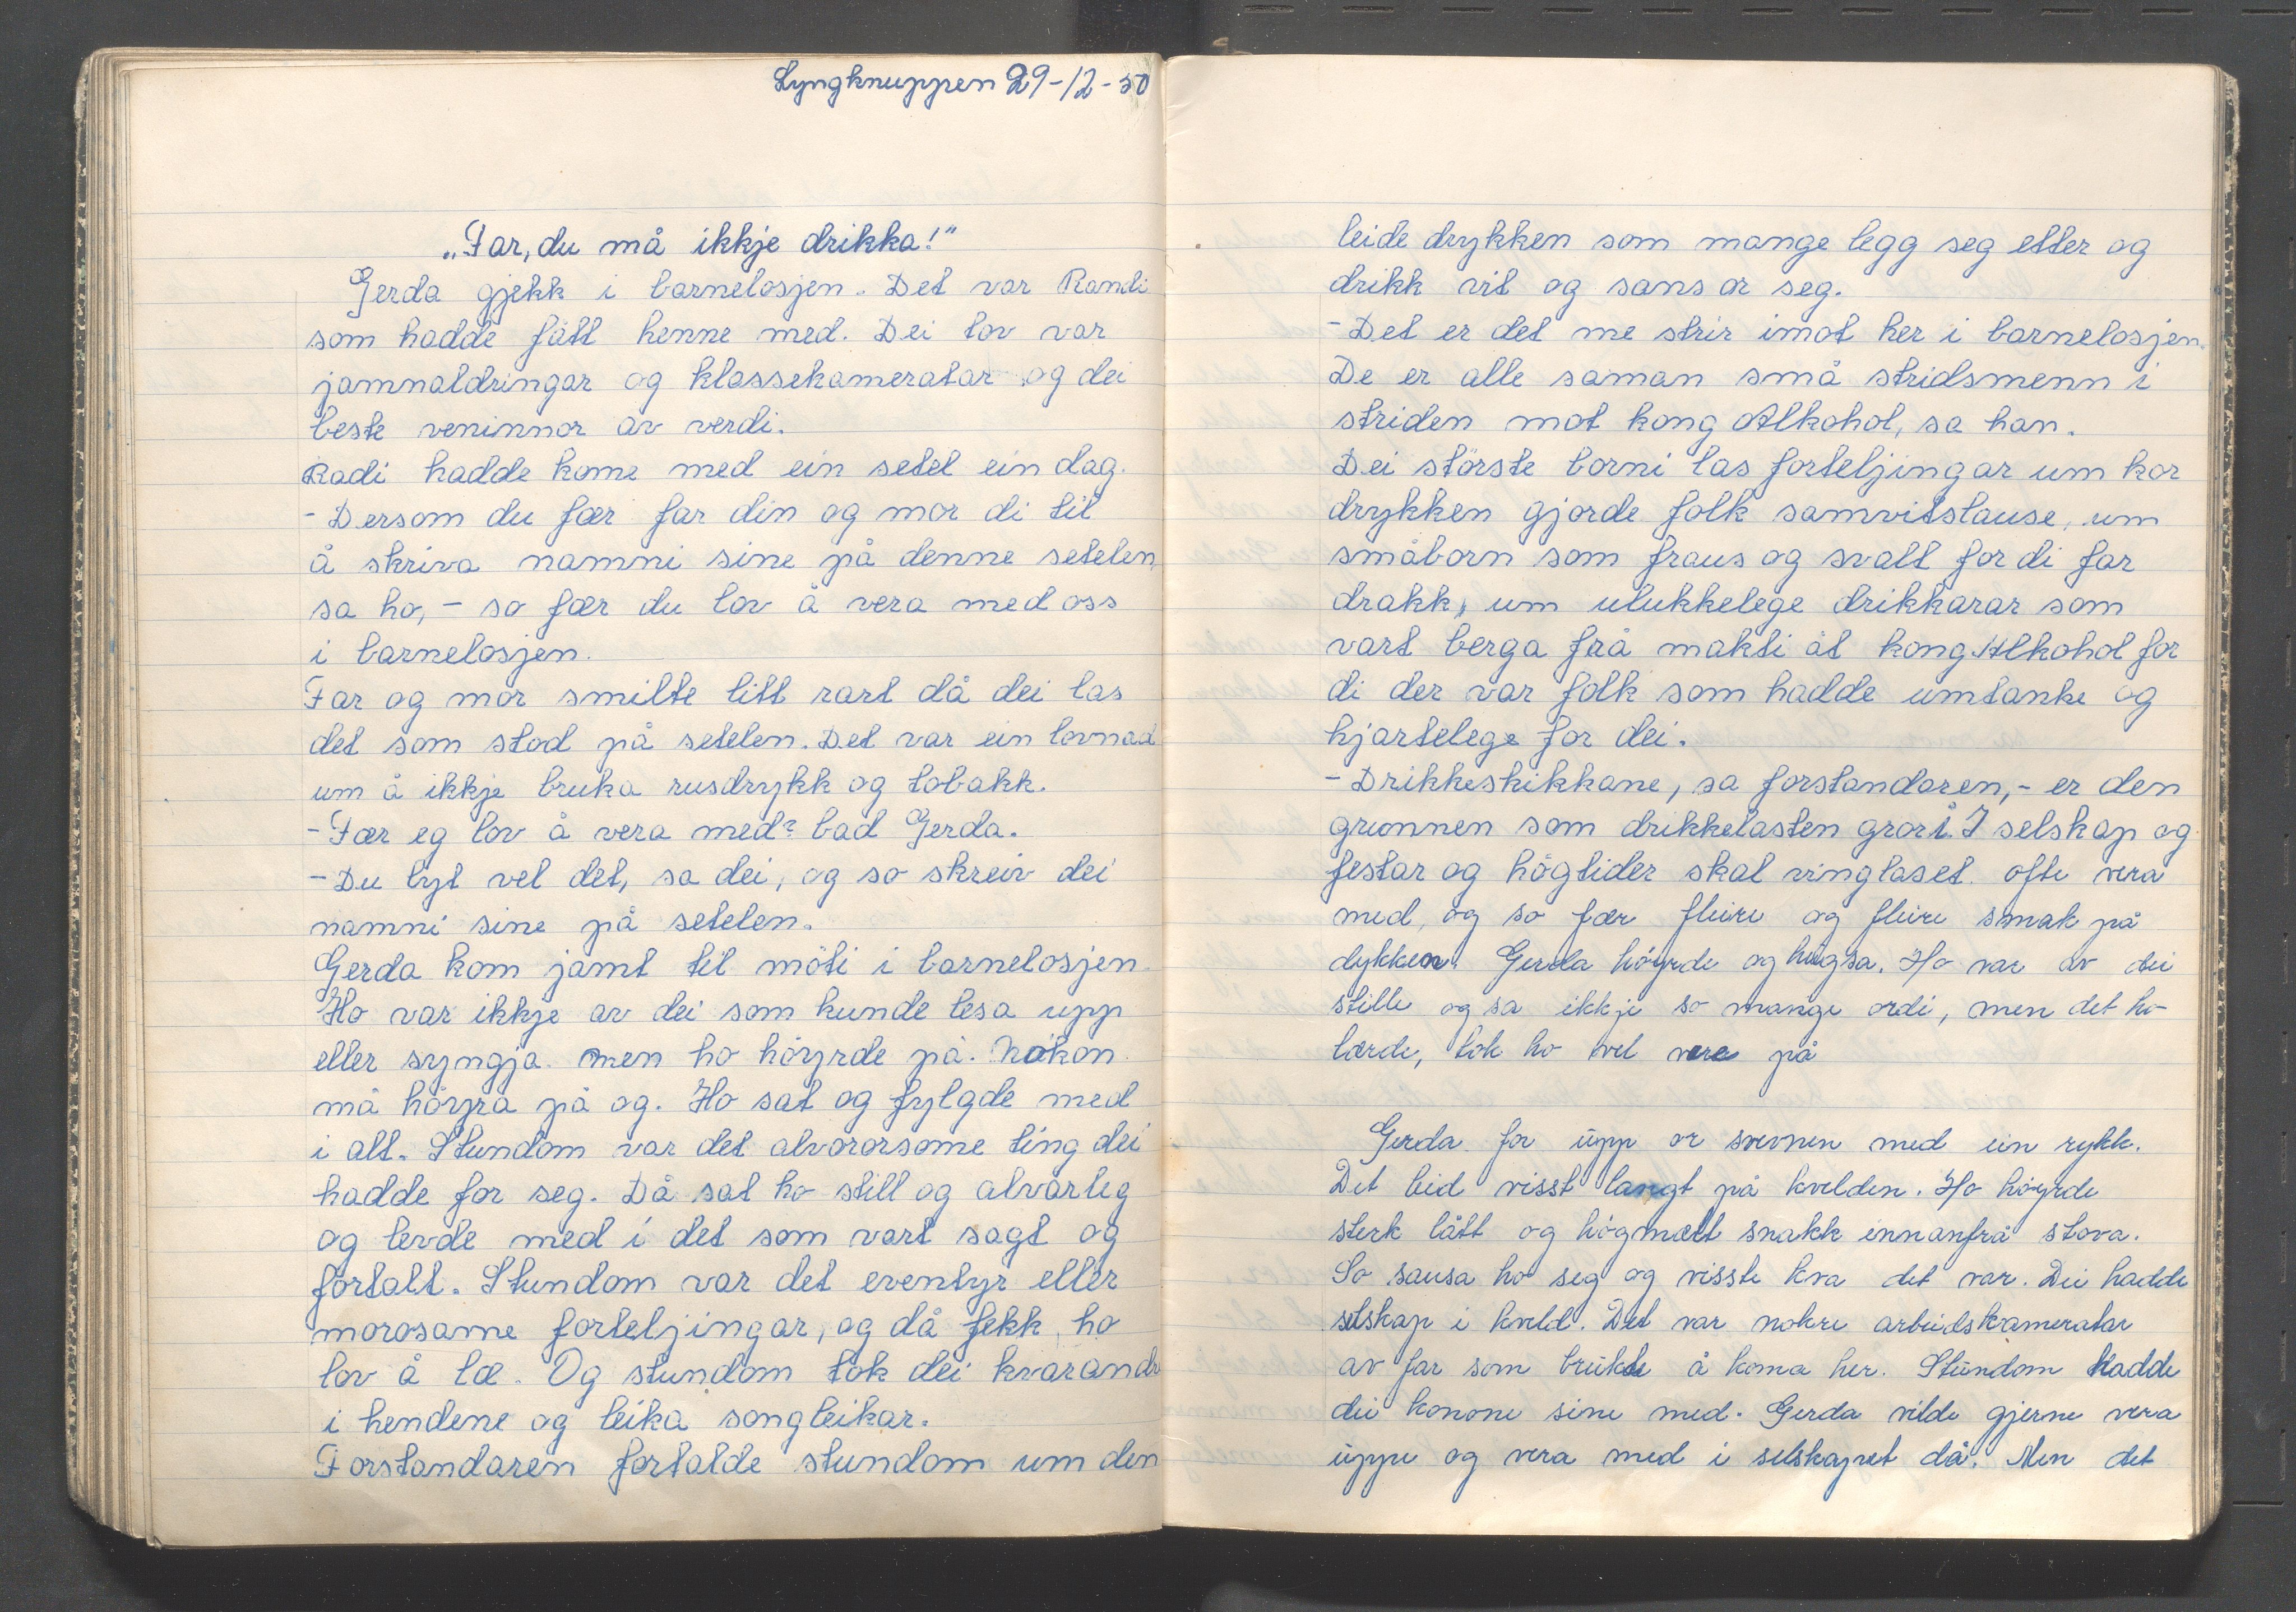 Lyngknuppen 29-12-50
„Far, du må ikkje drikka!"
Gerda gjekk i barnelosjen. Det var Randi
som hadde fått henne med. Dei tov var
jamnaldringar og klassekameratar og dei
beste veninnor av verdi.
Radi hadde kome med ein setel ein dag.
- Dersom du fær far din og mor di til
å skriva namni sine på denne setelen,
sa ho, - so fær du lov å vera med oss
i barnelosjen.
Far og mor smilte litt rart då dei las
det som stod på setelen. Det var ein lovnad
um å ikkje bruka rusdrykk og tobakk.
- Fær eg lov å vera med? bad Gerda.
- Du lyt vel det, sa dei, og so skreiv dei
namni sine på setelen.
Gerda kom jamt til möti i barnelosjen.
Ho var ikkje av dei som kunde lesa upp
eller syngja. men ho höyrde på. Nokon
må höyra på og. Ho sat og fylgde med
i alt. Stundom var det alvororsome ting dei
hadde for seg. Då sat ho still og alvorleg
og levde med i det som vart sagt og
fortalt. Stundom var det eventyr eller
morosame forteljingar, og då fekk ho
lov å læ. Og stundom tok dei kvarandr
i hendene og leika songleikar.
Forstandaren fortalde stundom um den
leide drykken som mange legg seg etter og
drikk vit og sans or seg.
- Det er det me strir imot her i barnelosjen.
De er alle saman små stridsmenn i
striden mot kong Alkohol, sa han.
Dei störste borni las forteljingar um kor
drykken gjorde folk samvitslause, um
småborn som fraus og svalt for di far
drakk, um ulukkelege drikkarar som
vart berga frå makti åt kong Alkohol for
di der var folk som hadde umtanke og
hjartelege for dei.
- Drikkeskikkane, sa forstandaren, - er den
grunnen som drikkelasten gror i. I selskap og
festar og högtider skal vinglaset ofte vera
med, og so fær fleire og fleire smak på
dykken. Gerda höyrde og hugsa. Ho var av dei
stille og sa ikkje so mange ordi, men det ho
lærde, tok ho vel vare på
Gerda for upp or svevnen med ein rykk.
Det leid visst langt på kvelden. Ho höyrde
sterk lått og högmælt snakk innanfrå stova.
So sansa ho seg og visste kva det var. Dei hadde
selskap i kveld. Det var nokre arbeidskameratar
av far som brukte å koma her. Stundom hadde
dei konone sine med. Gerda vilde gjerne vera
uppe og vera med i selskapet då. Men det